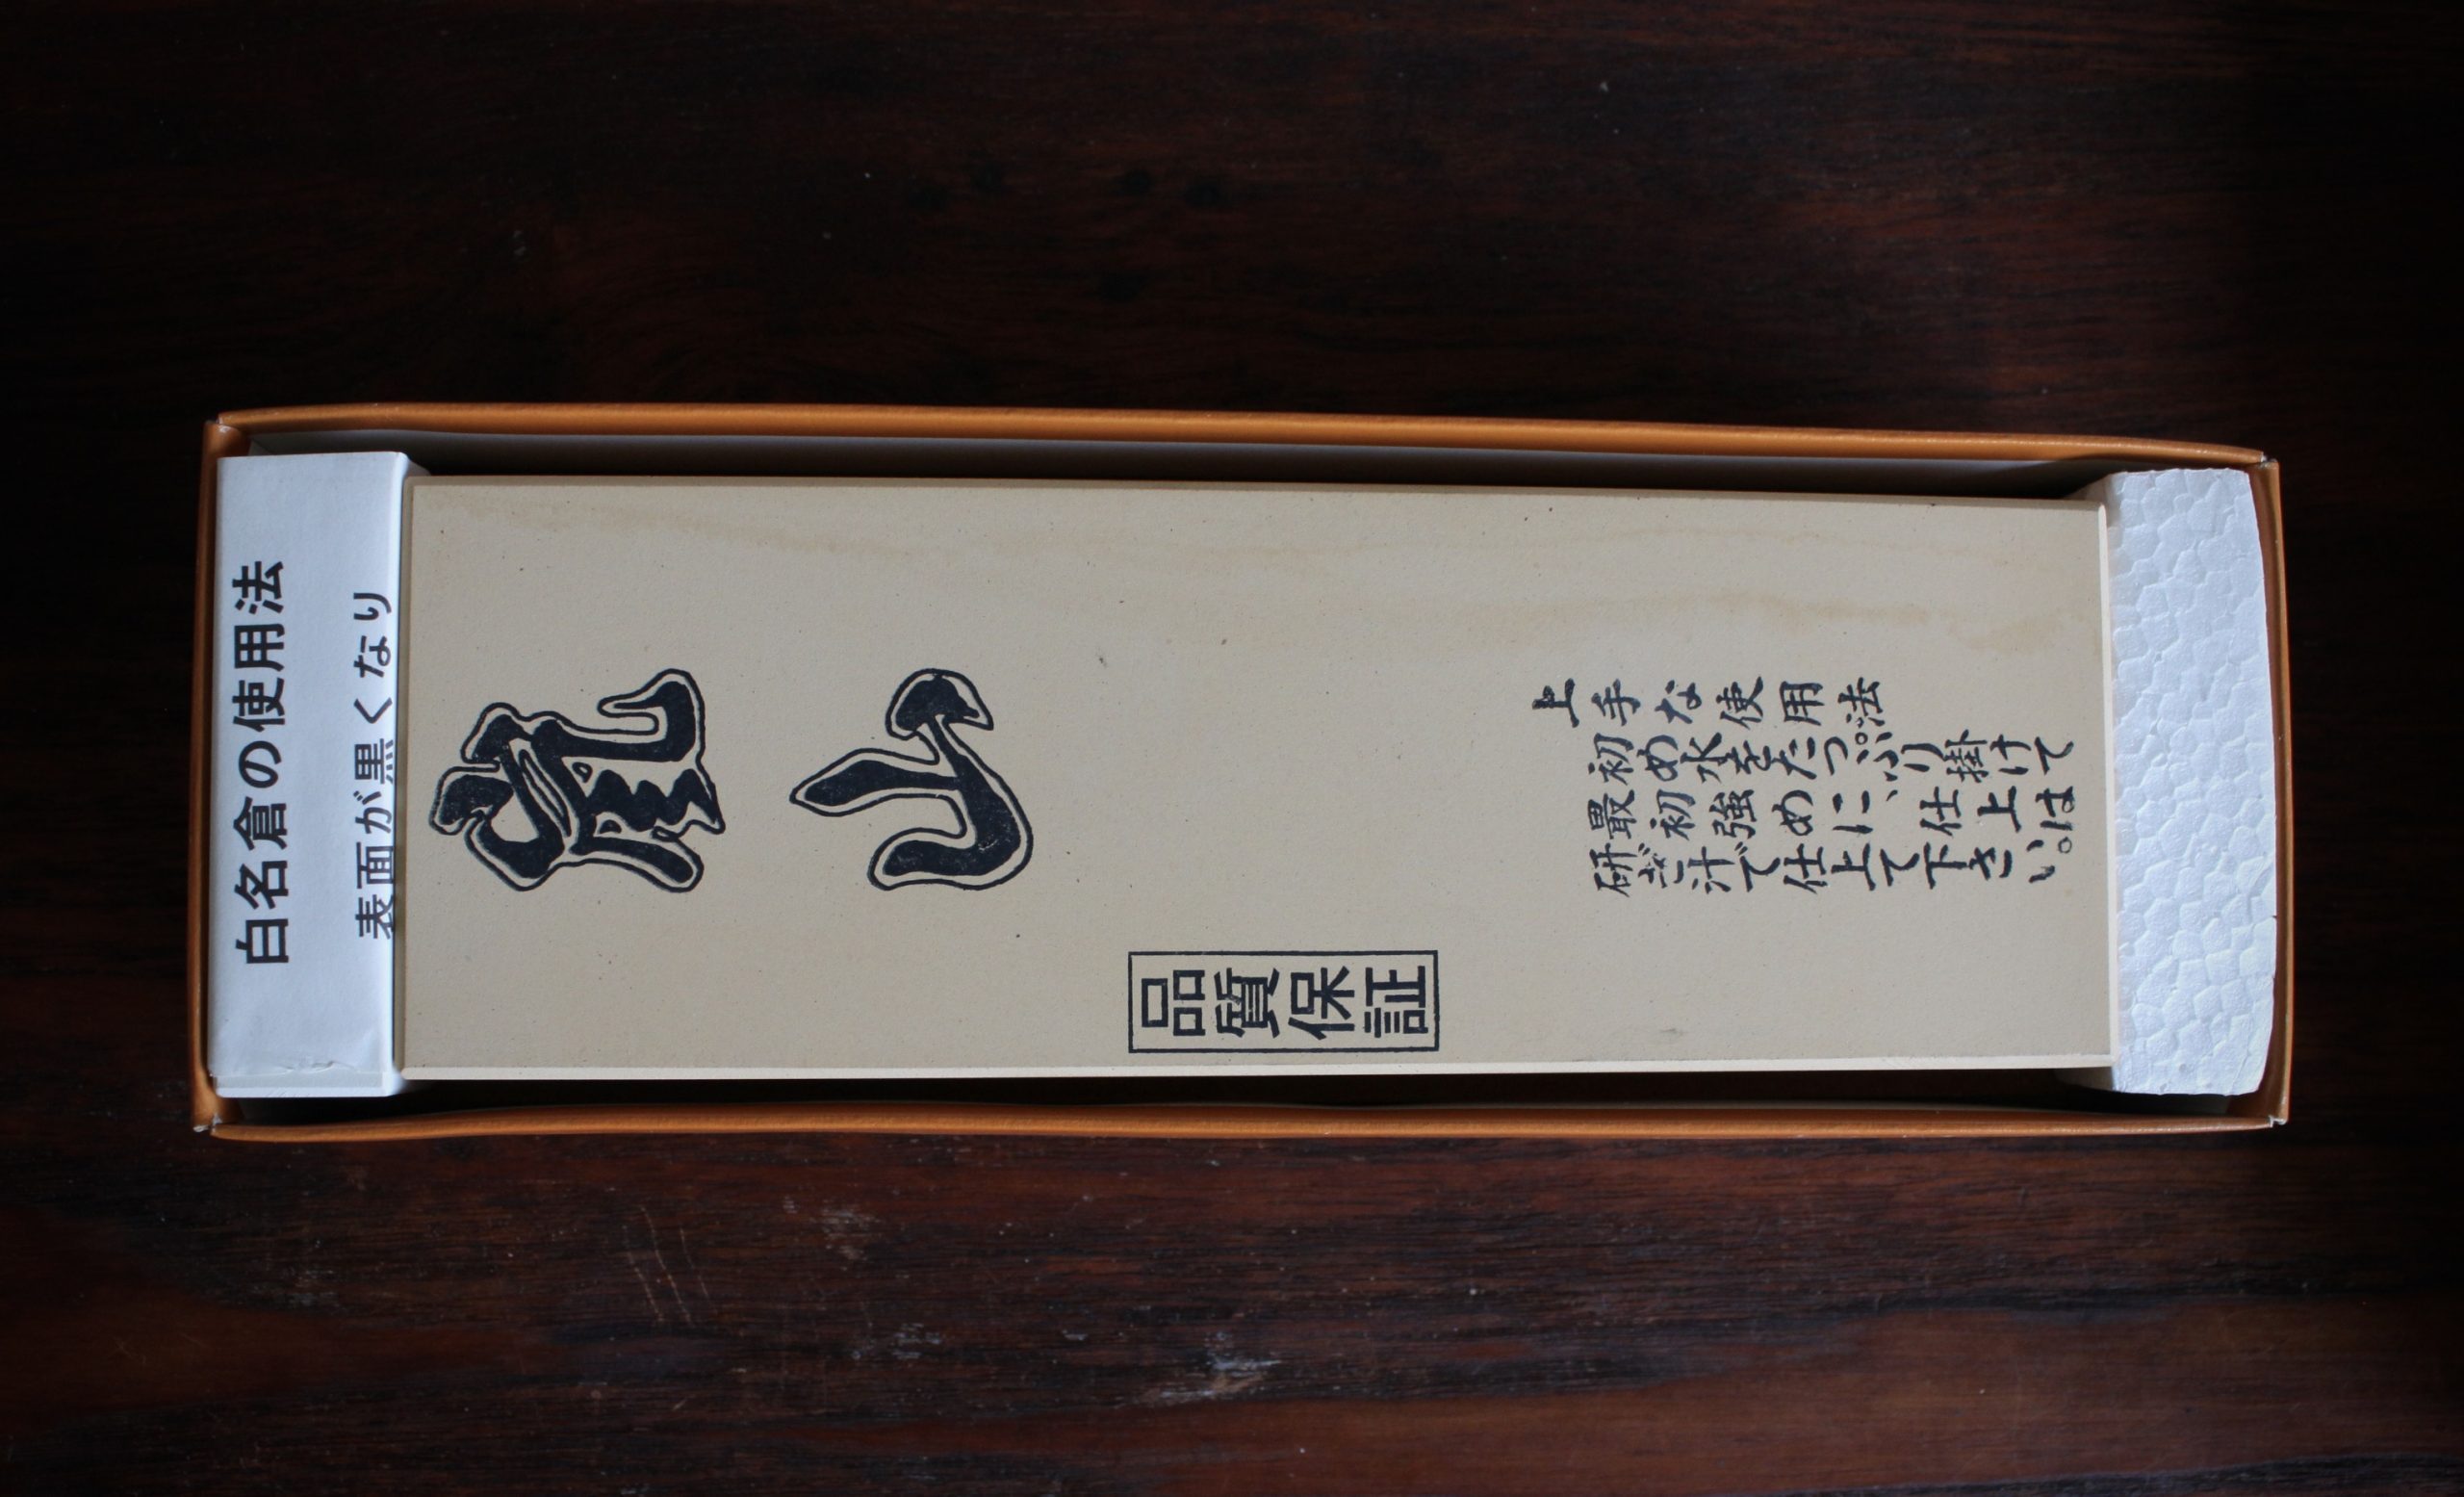 白名倉の使用法
表面が黒くなり
嵐山
品質保証
上手な使用法。
初め水をたっぷり掛けて
最初強めに、仕上は
研ぎ汁で仕上て下さい。